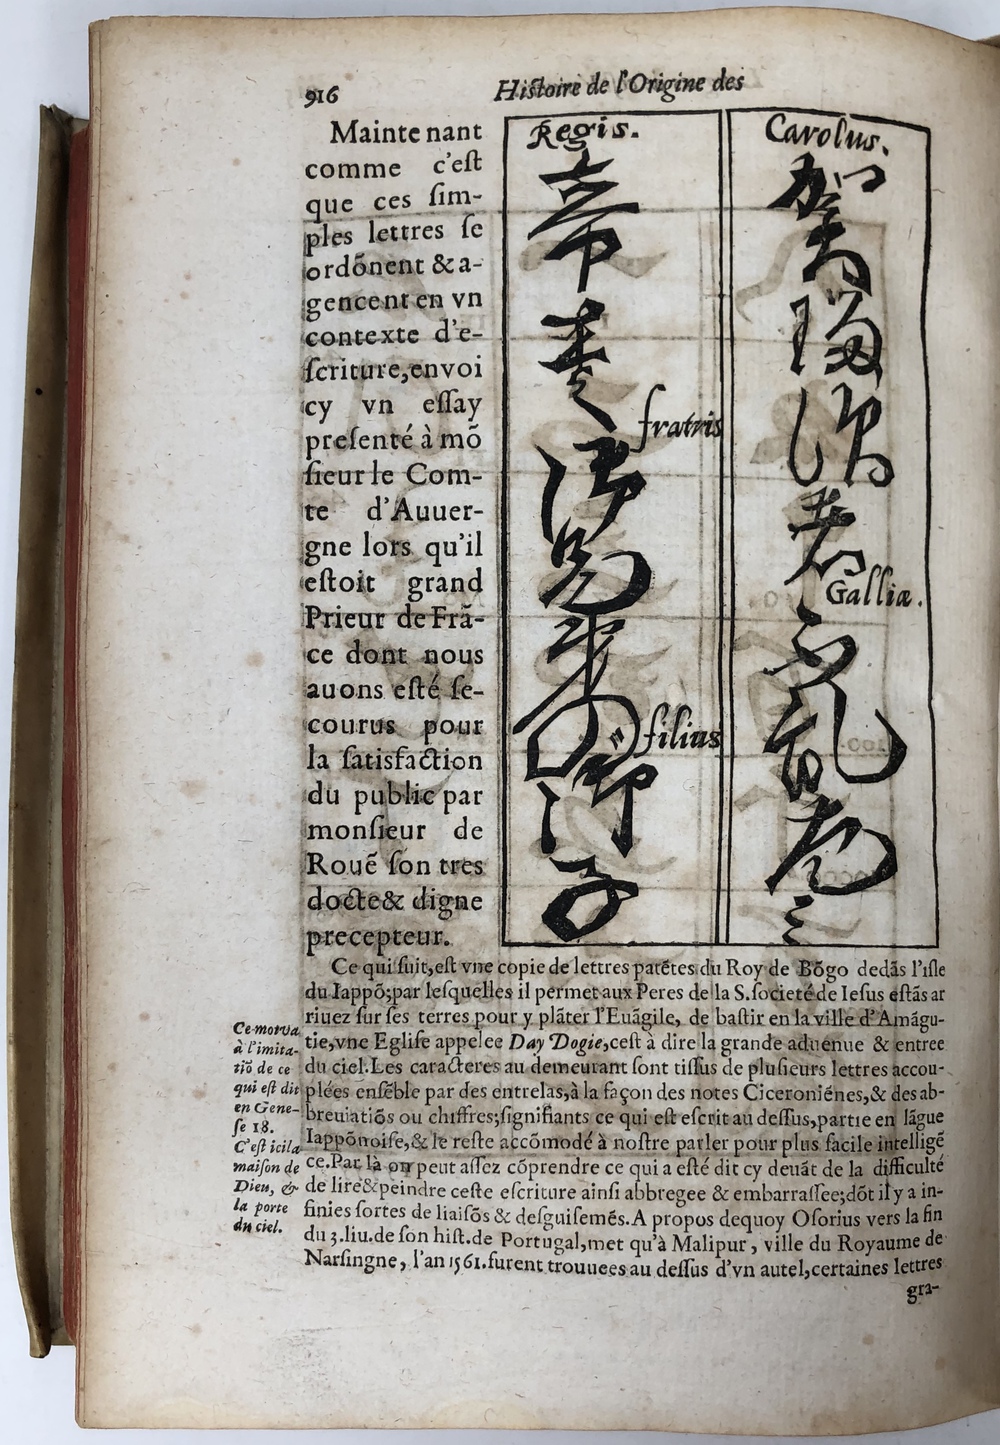 916
Histoire de l'Origine des
Mainte nant
comme c'eſt
que ces ſim-
ples lettres ſe
ordõnent & a-
gencent en vn
contexte d'e-
ſcriture, envoi
cy vn eſſay
preſenté à mõ
ſieur le Com-
te d'Auuer-
gne lors qu'il
eſtoit grand
Prieur de Frã-
ce dont nous
auons eſté ſe-
courus pour
la ſatisfaction
du public par
monſieur de
Rouẽ ſon tres
docte & digne
precepteur.
Carolus.
Galliæ.
Regis.
帝
fratris
filius
子
Ce qui ſuit, eſt vne copie de lettres patẽtes du Roy de Bõgo dedãs l'iſle
du Iappõ; par leſquelles il permet aux Peres de la S. ſocieté de Ieſus eſtãs ar
riuez ſur ſes terres pour y plãter l'Euãgile, de baſtir en la ville d'Amãgu-
tie, vne Egliſe appelee Day Dogie, ceſt à dire la grande aduenue & entree
du ciel. Les caracteres au demeurant ſont tiſſus de pluſieurs lettres accou-
plées enſẽble par des entrelas, à la façon des notes Ciceroniẽnes, & des ab-
breuiatiõs ou chiffres; ſignifiants ce qui eſt eſcrit au deſſus, partie en lãgue
Iappõnoiſe, & le reſte accõmodé à noſtre parler pour plus facile intelligẽ
ce. Par là on peut aſſez cõprendre ce qui a eſté dit cy deuãt de la difficulté
de lire & peindre ceſte eſcriture ainſi abbregee & embarraſſee; dõt il y a in-
finies ſortes de liaiſõs & deſguiſemẽs. A propos dequoy Oſorius vers la fin
du 3. liu. de ſon hiſt. de Portugal, met qu'à Malipur, ville du Royaume de
Narſingne, l'an 1561. furent trouuees au deſſus d'vn autel, certaines lettres
gra-
Ce mot va
à l'imita-
tiõ de ce
qui eſt dit
en Gene-
ſe 18.
C'eſt ici la
maiſon de
Dieu, &
la porte
du ciel.